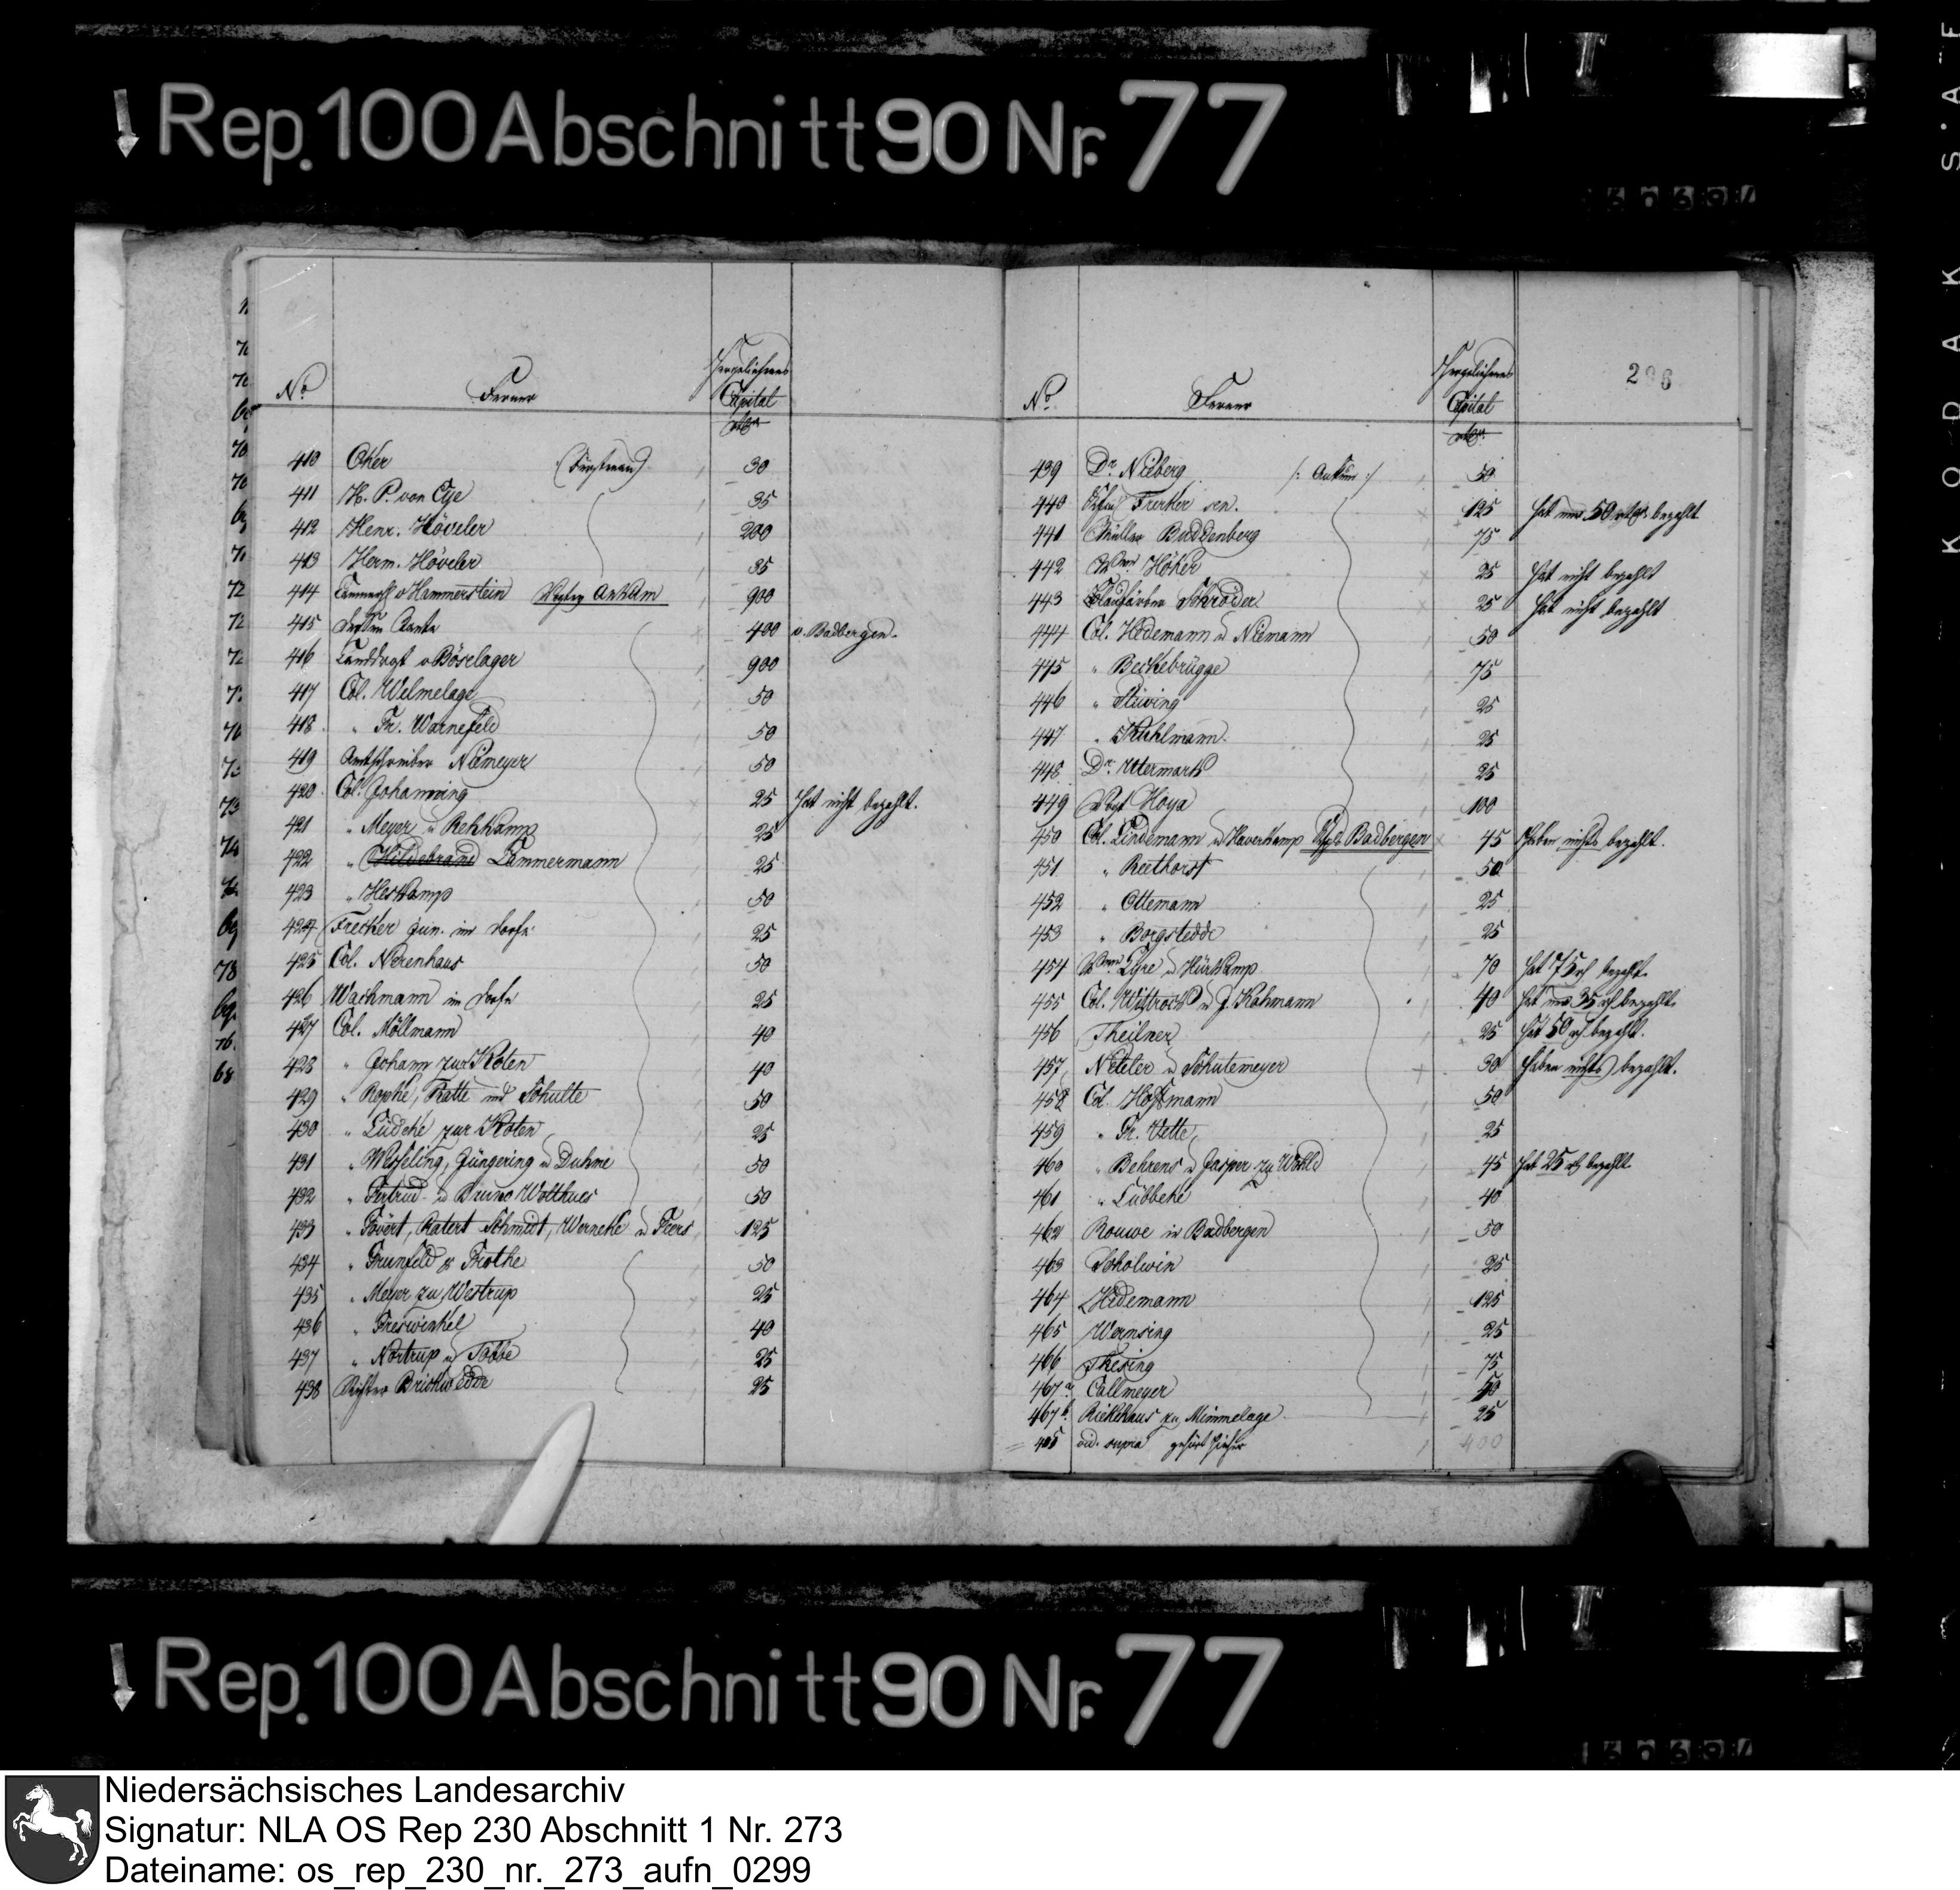 Rep. 100 Abschnitt 90 Nr. 77
No Ferner Capital
410 Oker (Fürstenau) 30
411 H. P. von Eye 35
412 Henr. Höveler 200
413 Herm. Höveler 35
414 v Hammerstein Vogtey Ankum 900
415 400 v. Badbergen.
416 Landdrost v Böselager 900
417 Col. Welmelage 50
418 " Fr. Warnefeld 50
419 Amtschreiber Niemeyer 50
420 Col. Johanning 25 Hat nicht bezahlt.
421 " Meyer u Rehkamp 25
422 " Hildebrand Lammermann 25
423 " Heskamp 50
424 Frecker jun. im Dorfe 25
425 Col. Nerenhaus 50
426 Wachmann im Dorfe 25
427 Col. Möllmann 40
428 " Johann zur Koten 40
429 " Rophe, Ratte und Schulte 50
430 " Lüdeke zur Koten 25
431 " Wesseling, Jüngering u Duhme 50
432 " Gertrud u Bruno Wolthues 50
433 " Govert, Ratert Schmidt, Werneke u Freers 125
434 " Grunfeld & Grothe 50
435 " Meyer zu Westrup 25
436 " Greswinkel 40
437 " Nortrup u Tobbe 25
438 Richter Brickwedde 25
296
No Ferner Capital
439 Dr. Nieberg /: Ankum :/ 50
440 Frerker sen. 125 Hat nur 50 bezahlt
441 Müller Buddenberg 75
442 Höker 25 Hat nicht bezahlt
443 Blaufärber Schröder 25 Hat nicht bezahlt
444 Col. Hedemann u Niemann 50
445 " Beckebrügge 75
446 " Stüving 25
447 " Kuhlmann. 25
448 Dr. Utermark 25
449 Vogt Hoya 100
450 Col. Lindemann u Haverkamp Badbergen 45 Haben nichts bezahlt.
451 " Reethorst 50
452 " Ottemann 25
453 " Borgstedde 25
454 Eyre u Hürkamp 70 Hat 75 bezahlt.
455 Col. Wittrock u J. Kahmann 40 Hat nur 35 bezahlt.
456 Theilner 25 Hat 50 bezahlt.
457 Neteler u Schutemeyer 30 Haben nichts bezahlt.
458 Col. Hoffmann 50
459 " Fr. Vette 25
460 " Behrens u Jasper zu Wohld 45 Hat 25 bezahlt
461 " Lübbeke 40
462 Rouwe in Badbergen 50
463 Scholwin 25
464 Hedemann 125
465 Wernsing 25
466 Thesing 75
467 a Callmeyer 50
467 b. Riekehaus zu Mimmelage 25
415 vid. supra gehört hieher 400
Rep. 100 Abschnitt 90 Nr. 77
KODAK S.A.F.
Niedersächsisches Landesarchiv
Signatur: NLA OS Rep 230 Abschnitt 1 Nr. 273
Dateiname: os_rep_230_nr._273_aufn_0299